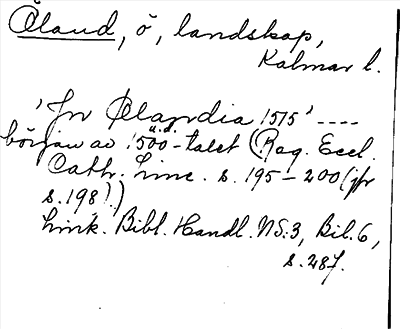 Öland, ö, landskap,
Kalmar l.
'Jn Ølandia 1515' ----
början av 1500-talet (Reg. Eccl.
Cath. Linc. s. 195-200 (jfr
s. 198).)
Link. Bibl. Handl. NS:3, Bil. 6,
s. 287.